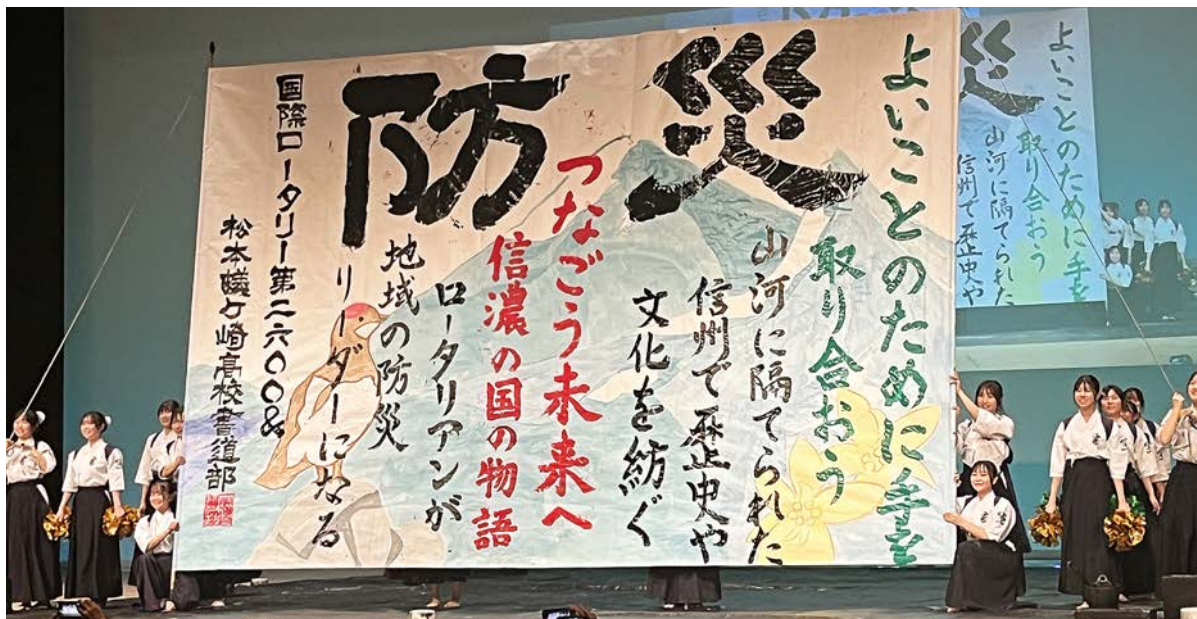 防災
よいことのために手を
取り合おう
山河に隔てられた
信州で歴史や
文化を紡ぐ
つなごう未来へ
信濃の国の物語
ロータリアンが
地域の防災
リーダーになる
国際ロータリー第二六〇〇&
松本蟻ヶ崎高校書道部
よいことのために手を
取り合おう
山河に隔てられた
信州で歴史や